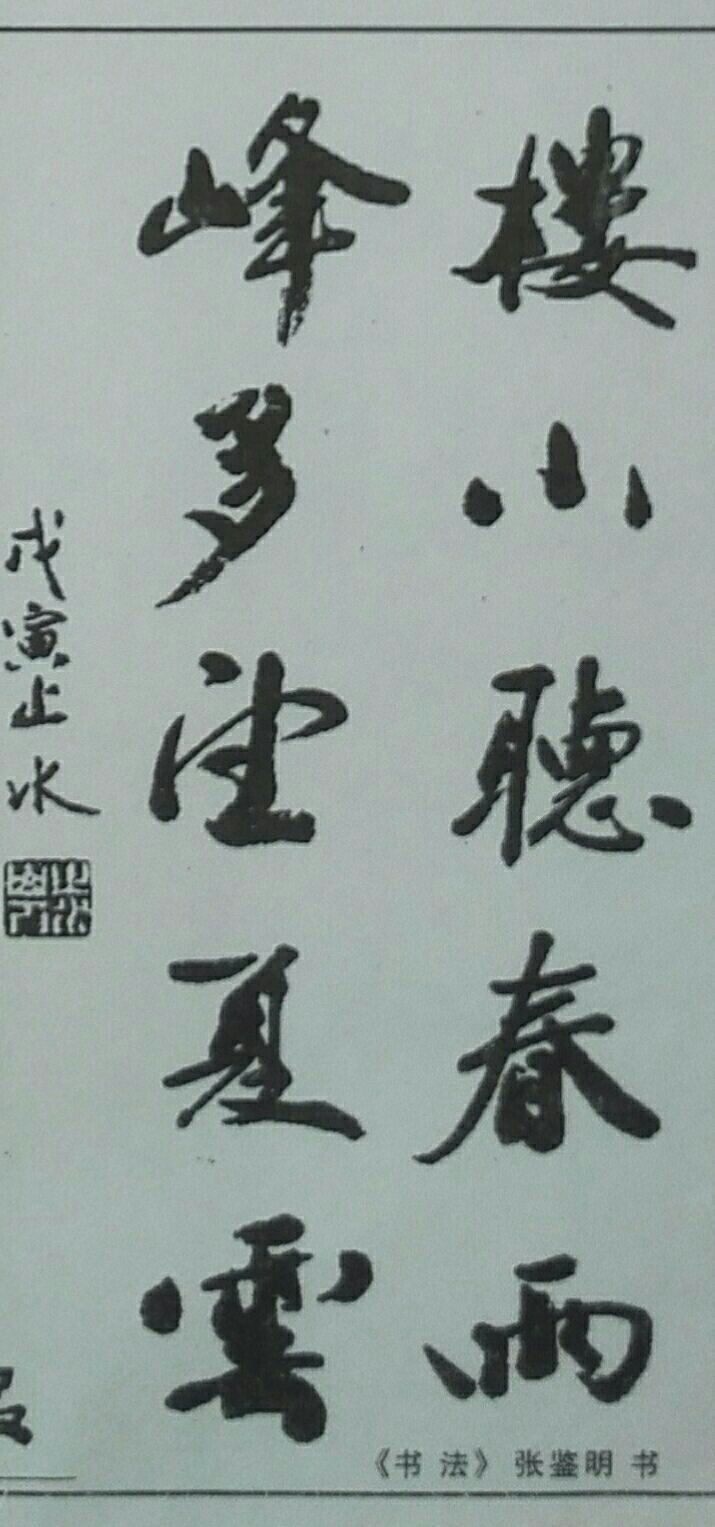 樓小聽春雨
峰多望夏雲
戊寅止水
《书 法》 张鉴明 书